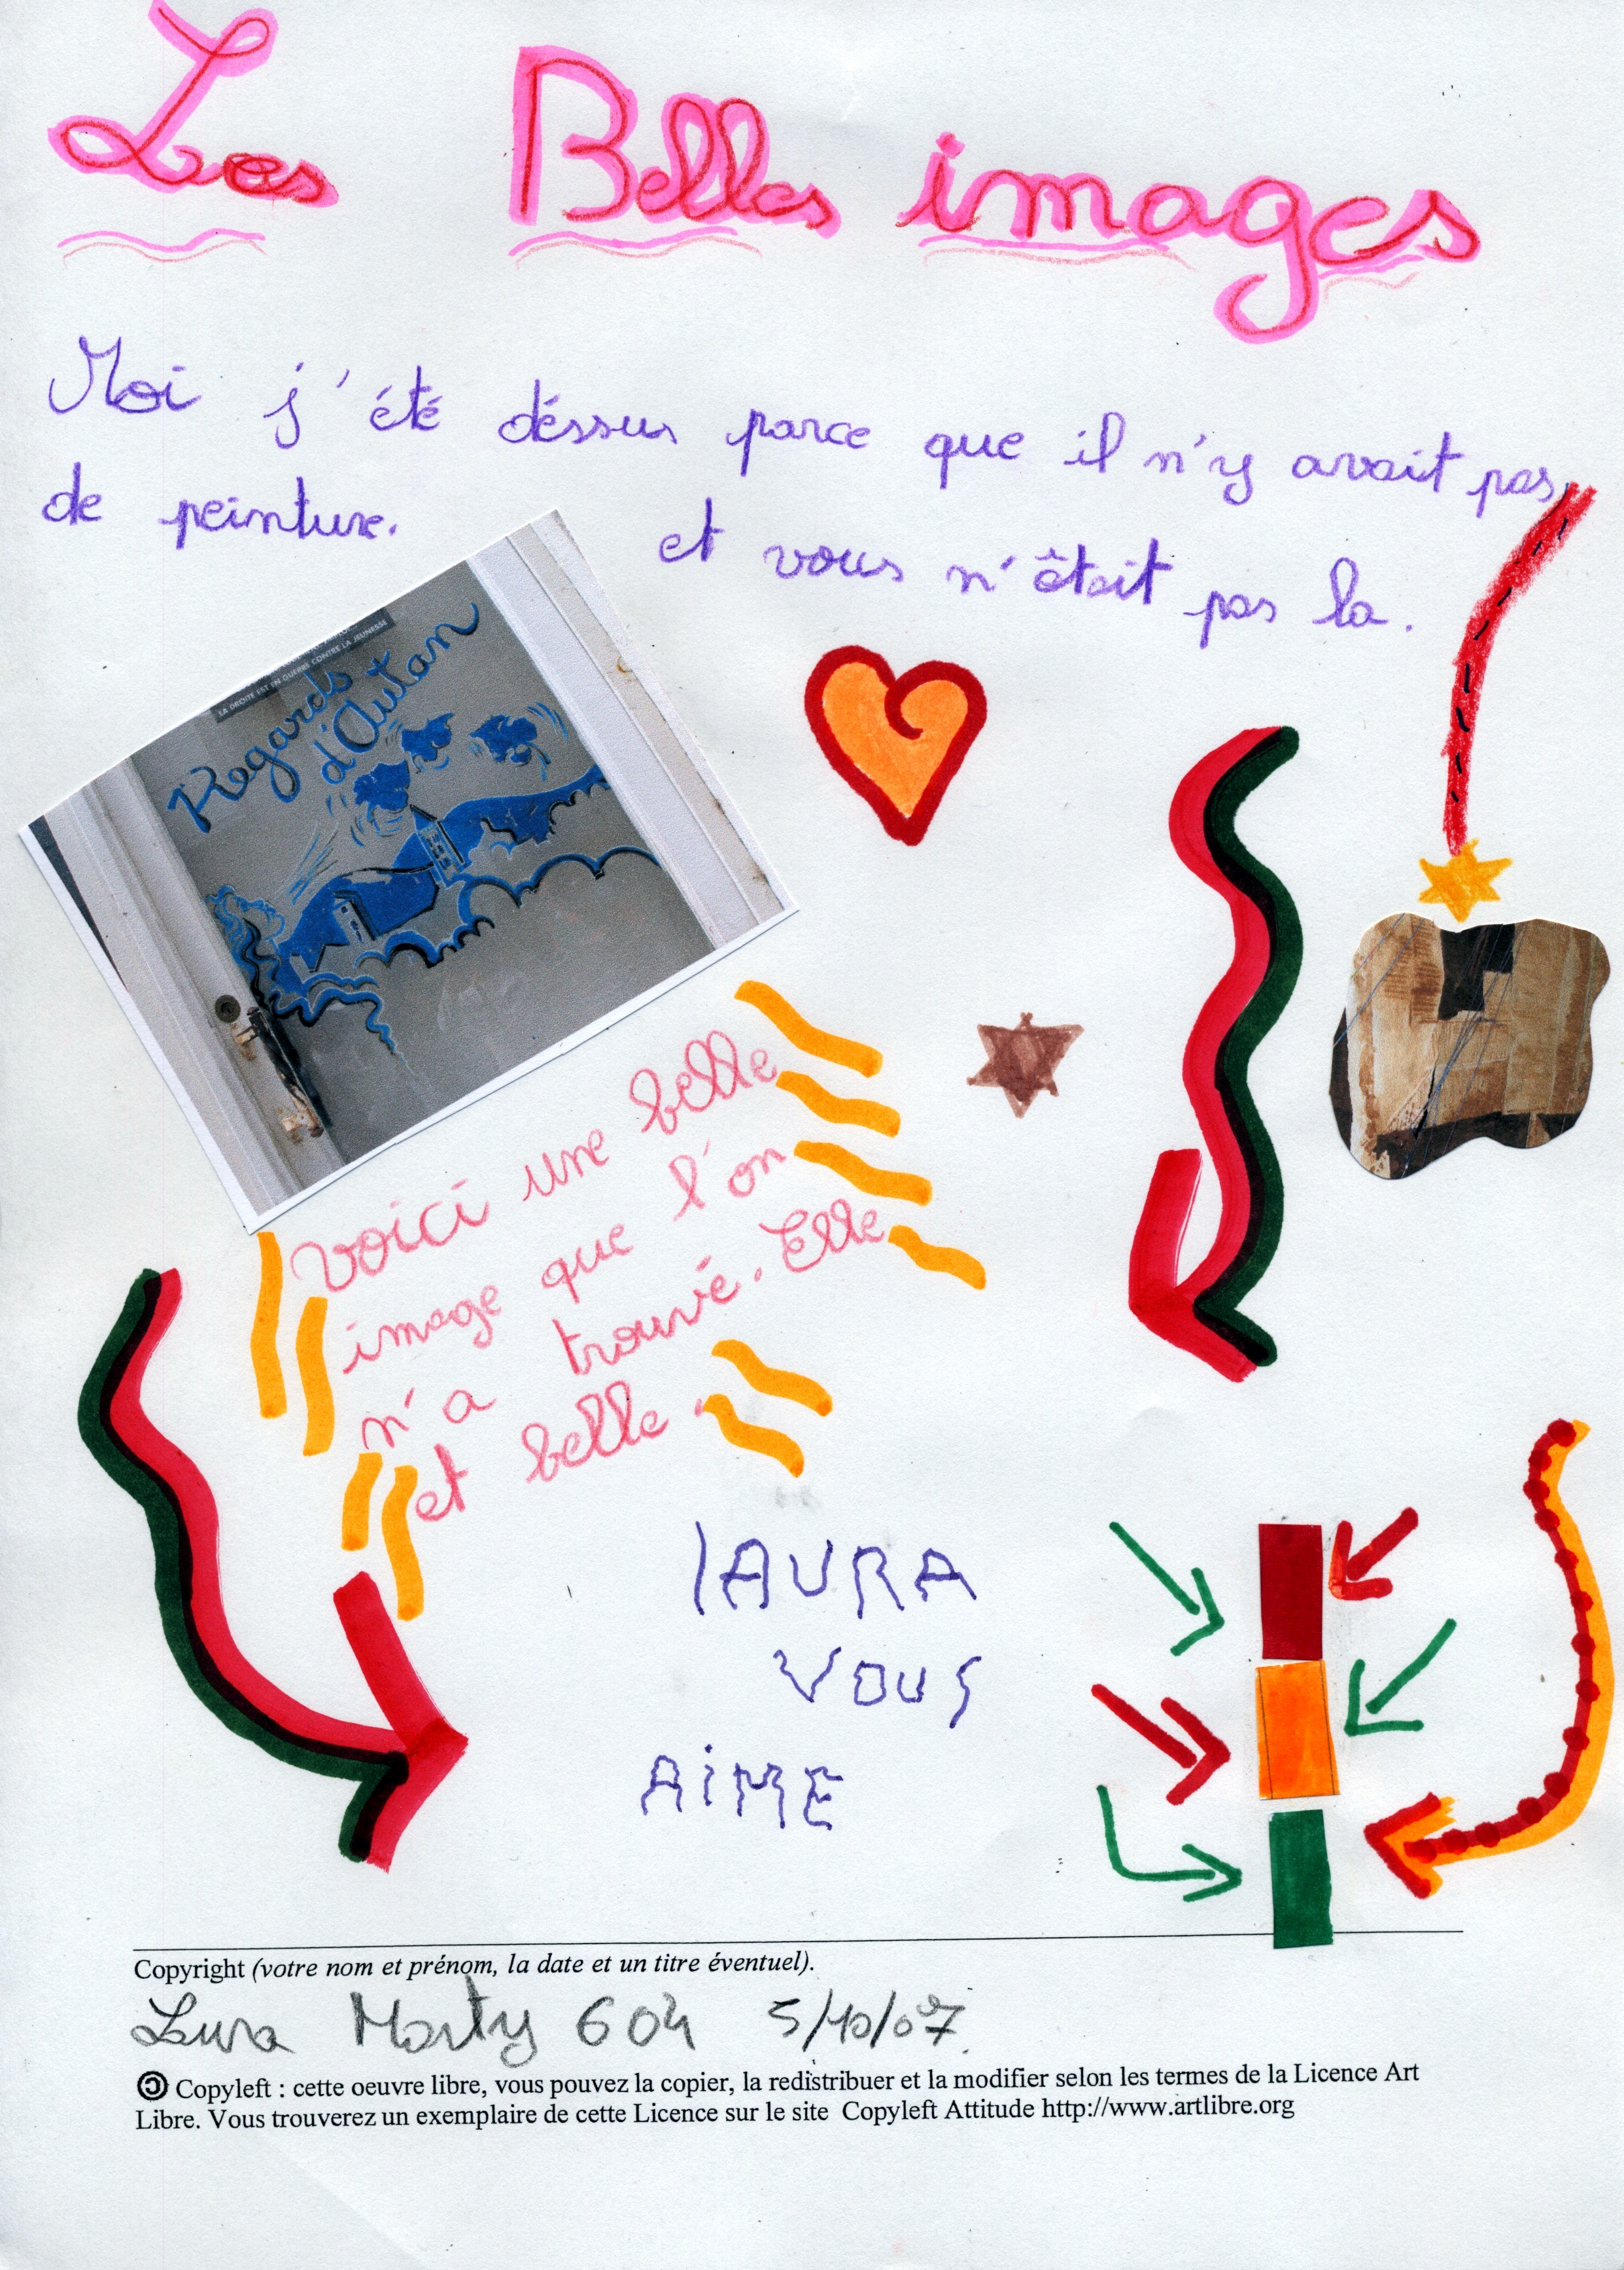 Les Belles images
Moi j'été déssus parce que il n'y avait pas
de peinture. et vous n'était pas la.
LA DROITE EST EN GUERRE CONTRE LA JEUNESSE
Regards
d'Autan
voici une belle
image que l'on
n'a trouvé. Elle
et belle.
lAURA
VOUS
AiME
Copyright (votre nom et prénom, la date et un titre éventuel).
Laura Marty 604 5/10/07.
Copyleft : cette oeuvre libre, vous pouvez la copier, la redistribuer et la modifier selon les termes de la Licence Art
Libre. Vous trouverez un exemplaire de cette Licence sur le site Copyleft Attitude http://www.artlibre.org